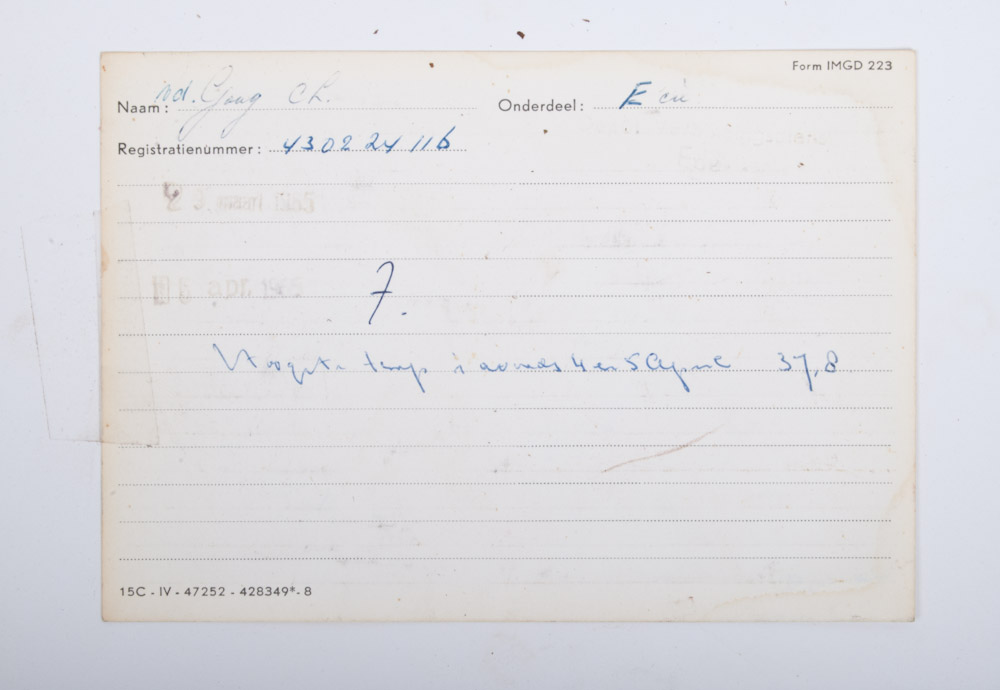 Form IMGD 223
Naam: vd. Gaag Ch. Onderdeel: E cie
Registratienummer: 43 02 24 116
23 maart
apr. 196
7.
Hoogste temp 's avonds 4 en 5 April 37,8
15C - IV - 47252 - 428349*- 8